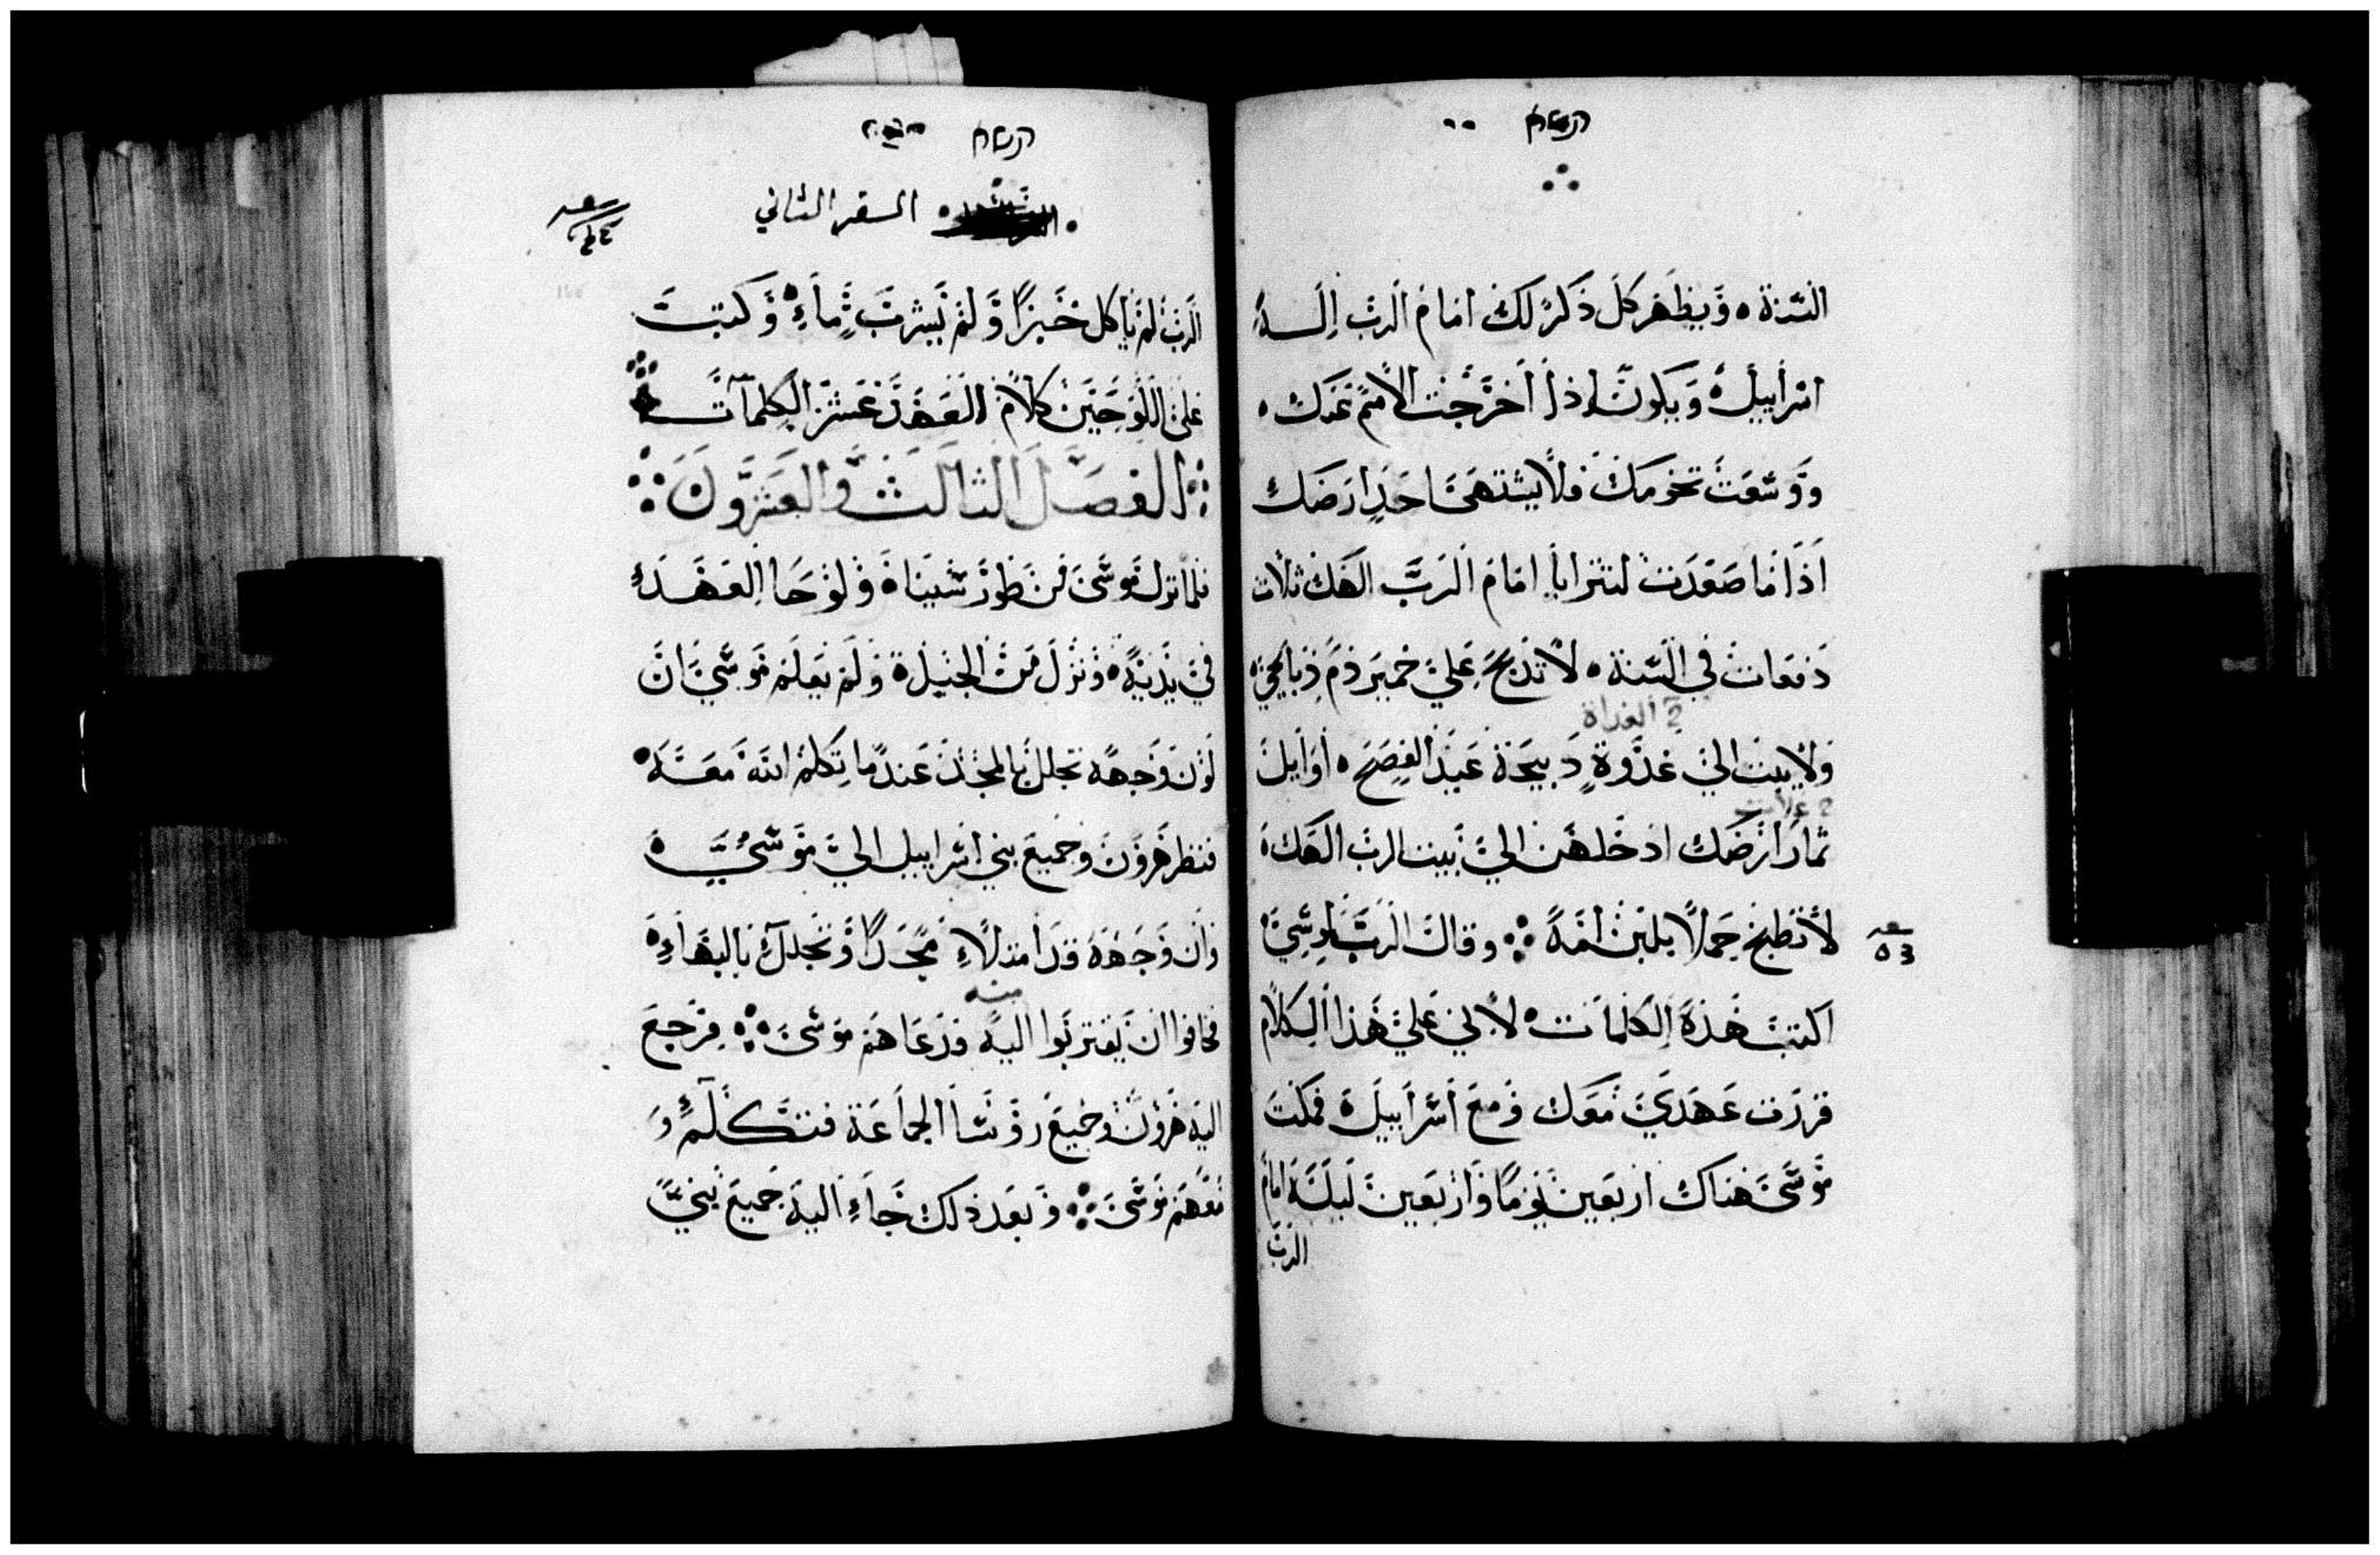 السنة ه ويظهر كل ذكر لك امام الرب اله
اسراييل ه ويكون اذا اخرجت الامم عنك ه
ووسعت تخومك فلا يشتهي احد ارضك
اذا ما صعدت لتترايا امام الرب الهك ثلاث
دفعات في السنة ه لا تذبح علي خمير دم ذبايحي ه
الغداة
ولا يبيت الي غدوة ذبيحة عيد الفصح ه اوايل
غلات
ثمار ارضك ادخلهن الي بيت الرب الهك ه
لا تطبخ حملا بلبن امه ⁘ وقال الرب لموسي
اكتب هذه الكلمات ه لاني علي هذا الكلام
قررت عهدي معك ومع اسراييل ه فمكث
موسي هناك اربعين يوما واربعين ليلة امام
الرب
السفر الثاني
الرب لم ياكل خبزا ولم يشرب ماء ه وكتب
علي اللوحين كلام العهد عشر الكلمات
⁘ الفصل الثالث والعشرون ⁘
فلما نزل موسي من طور سيناه ولوحا العهد
في يديه ه ونزل من الجبل ه ولم يعلم موسي ان
لون وجهه تجلل بالمجد عندما تكلم الله معه ه
فنظر هرون وجميع بني اسراييل الي موسي ه
وان وجهه قد امتلاء مجدا وتجلل بالبهاء ه
منه
فخافوا ان يقتربوا اليه فدعاهم موسي ⁘ فرجع
اليه هرون وجميع روسا الجماعة فتكلم
معهم موسي ⁘ وبعد ذلك جاء اليه جميع بني